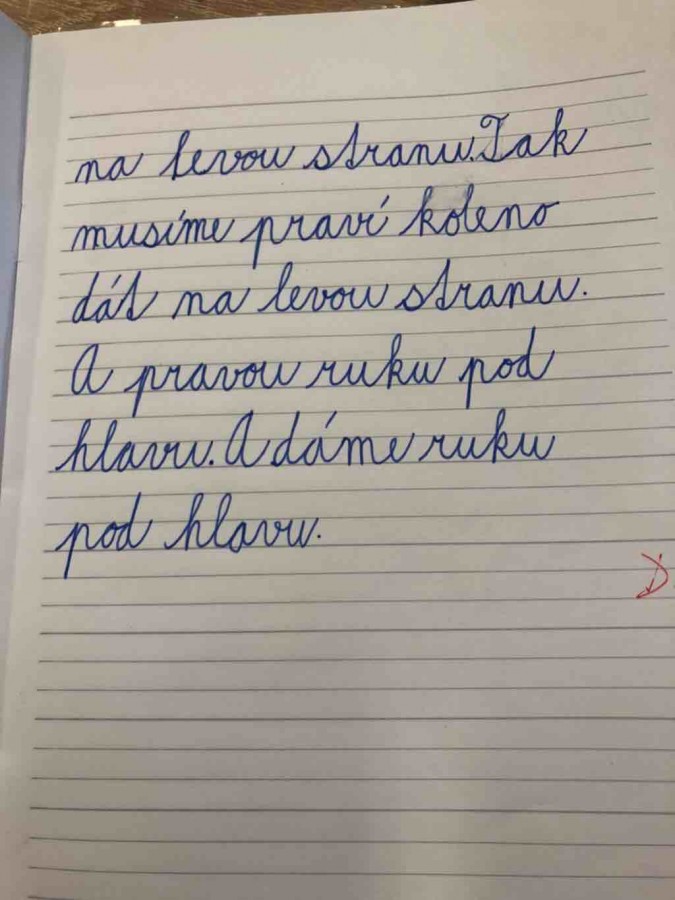 na levou stranu. Tak
musíme praví koleno
dát na levou stranu.
A pravou ruku pod
hlavu. A dáme ruku
pod hlavu.